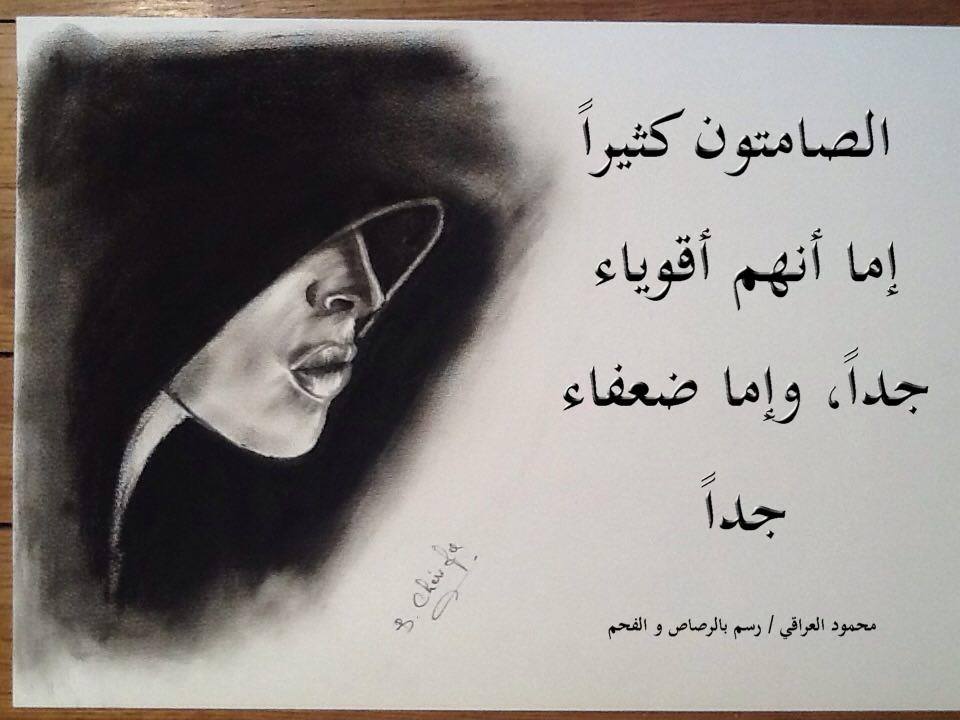 الصامتون كثيراً
إما أنهم أقوياء
جداً، وإما ضعفاء
جداً
محمود العراقي / رسم بالرصاص و الفحم